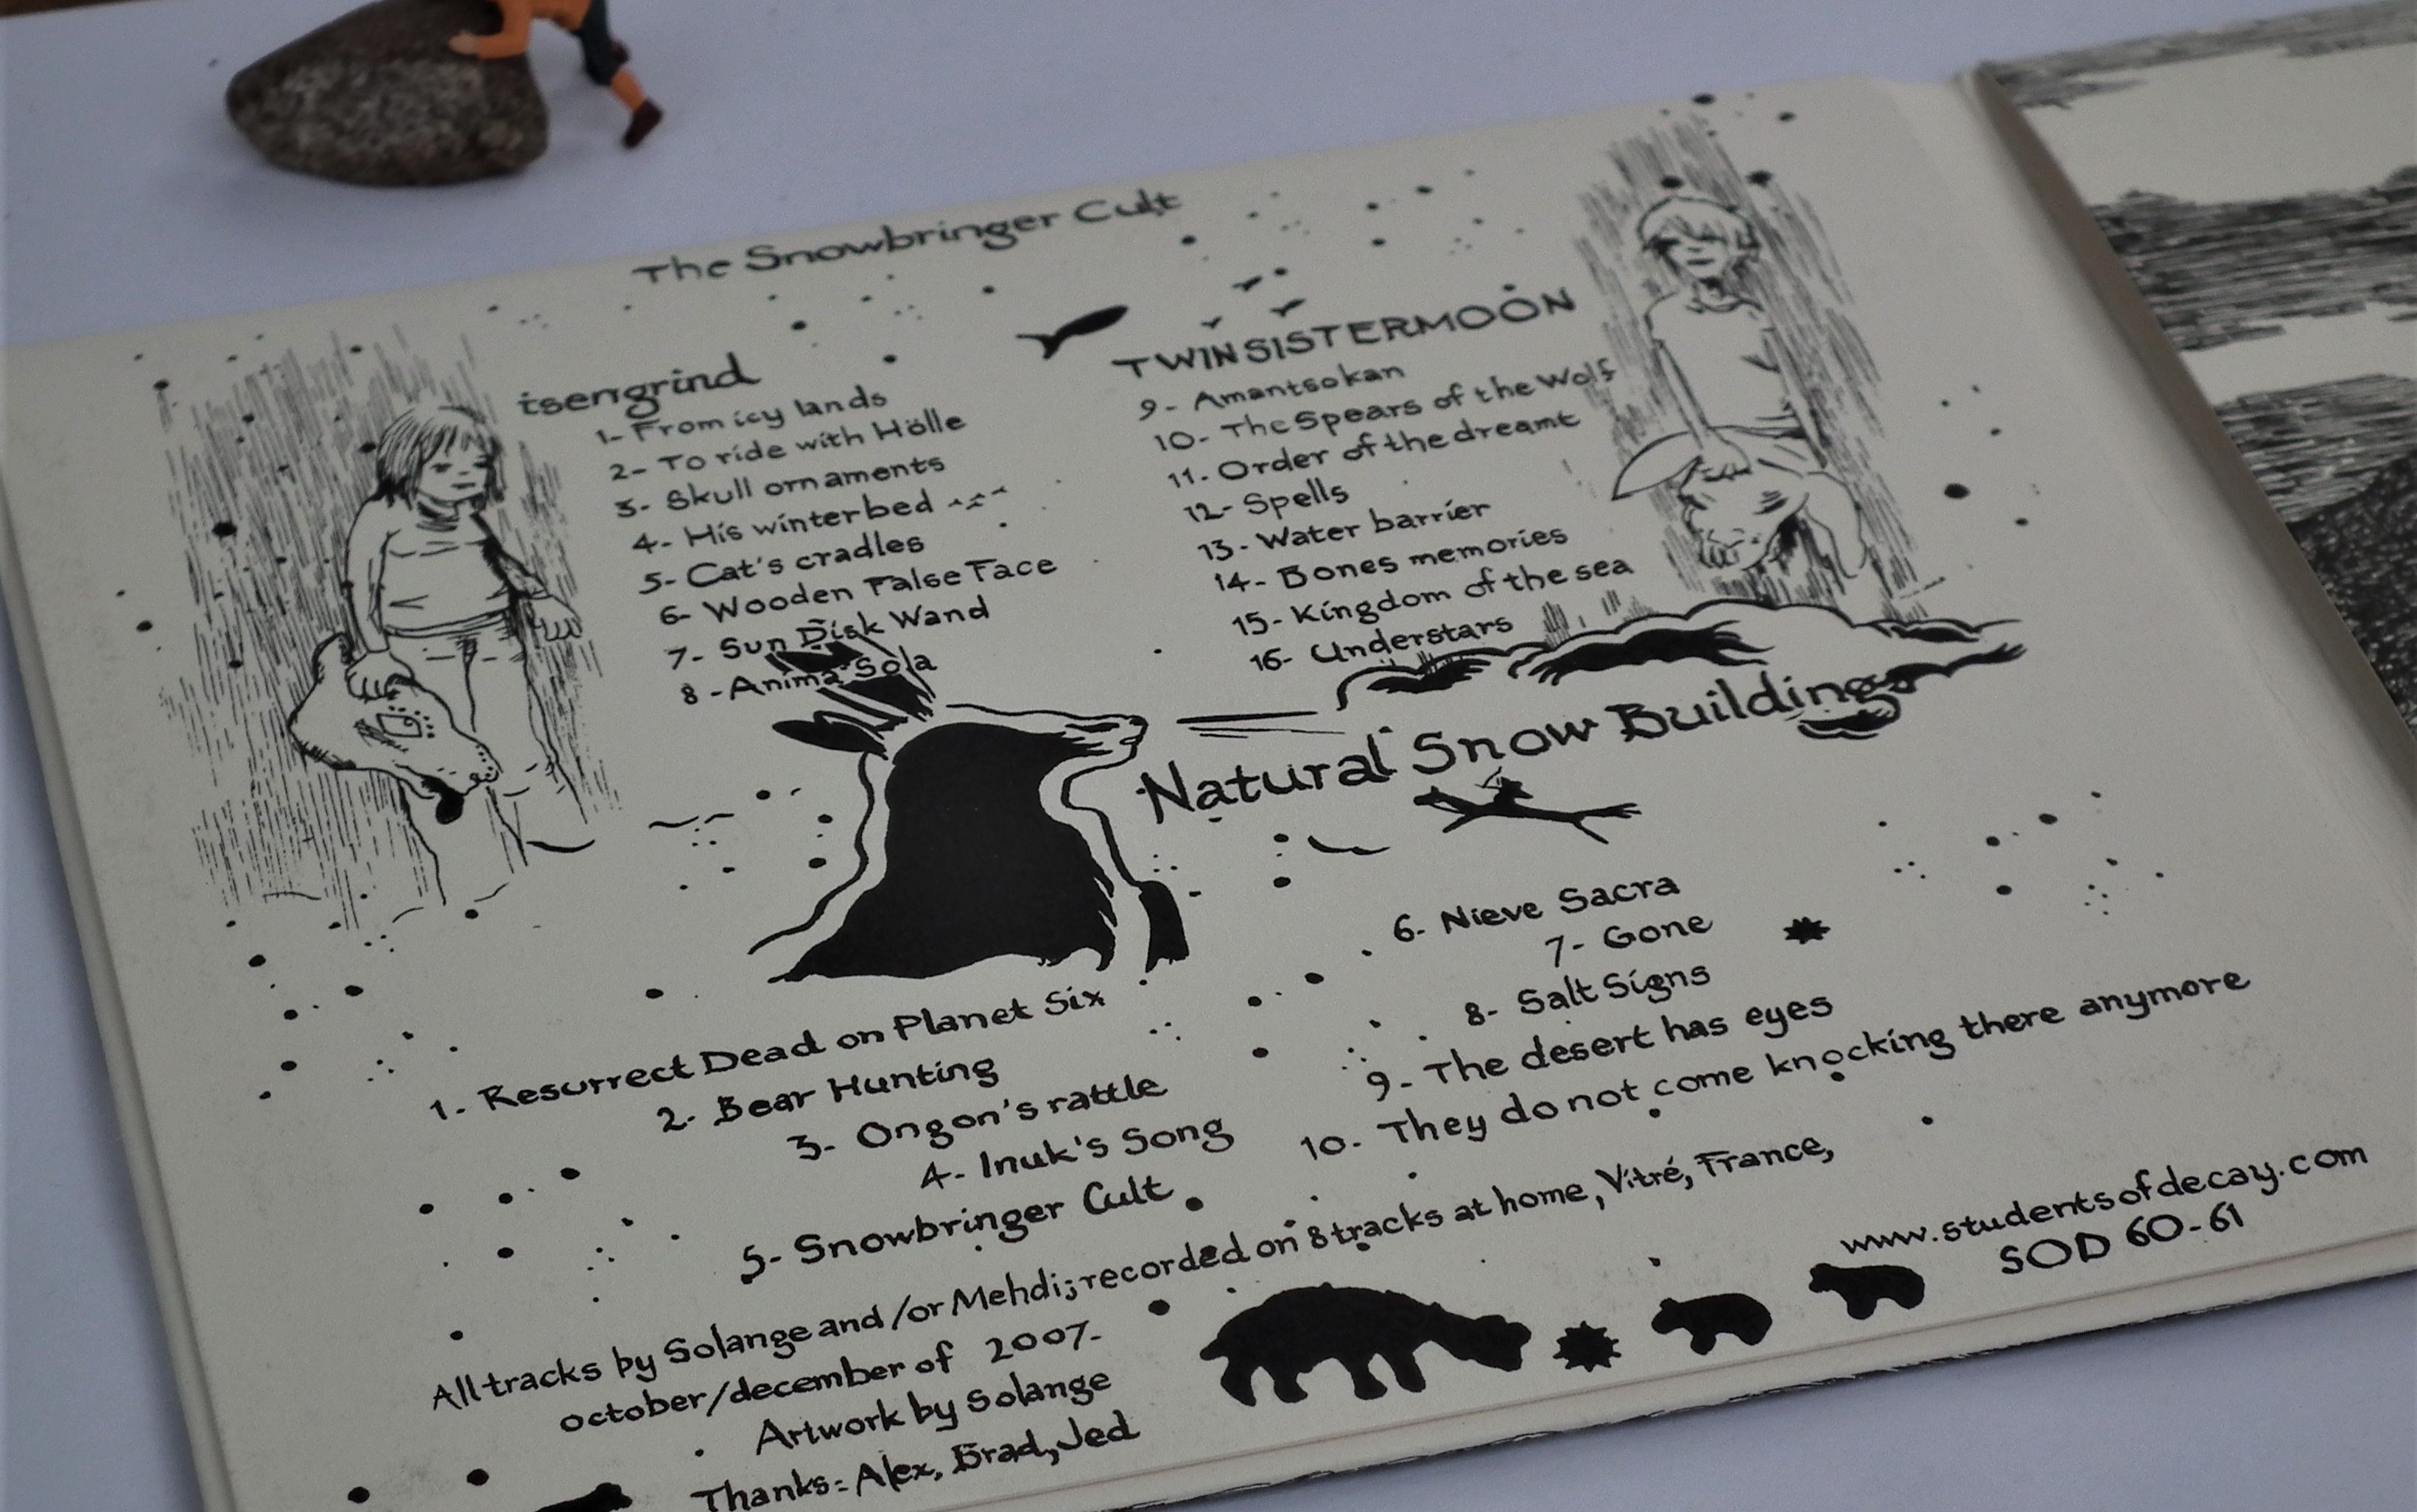 The Snowbringer Cult
isengrind
1- From icy lands
2- To ride with Hölle
3- Skull ornaments
4- His winterbed
5- Cat's cradles
6- Wooden False Face
7- Sun Disk Wand
8- Anima Sola
TWINSISTERMOON
9- Amantsokan
10- The Spears of the Wolf
11- Order of the dreamt
12- Spells
13- Water barrier
14- Bones memories
15- Kingdom of the sea
16- Understars
Natural Snow Buildings
1- Resurrect Dead on Planet Six
2- Bear Hunting
3- Ongon's rattle
4- Inuk's Song
5- Snowbringer Cult
6- Nieve Sacra
7- Gone
8- Salt Signs
9- The desert has eyes
10- They do not come knocking there anymore
All tracks by Solange and/or Mehdi; recorded on 8tracks at home, Vitré, France,
october/december of 2007-
Artwork by Solange
Thanks: Alex, Brad, Jed
www.studentsofdecay.com
SOD 60-61